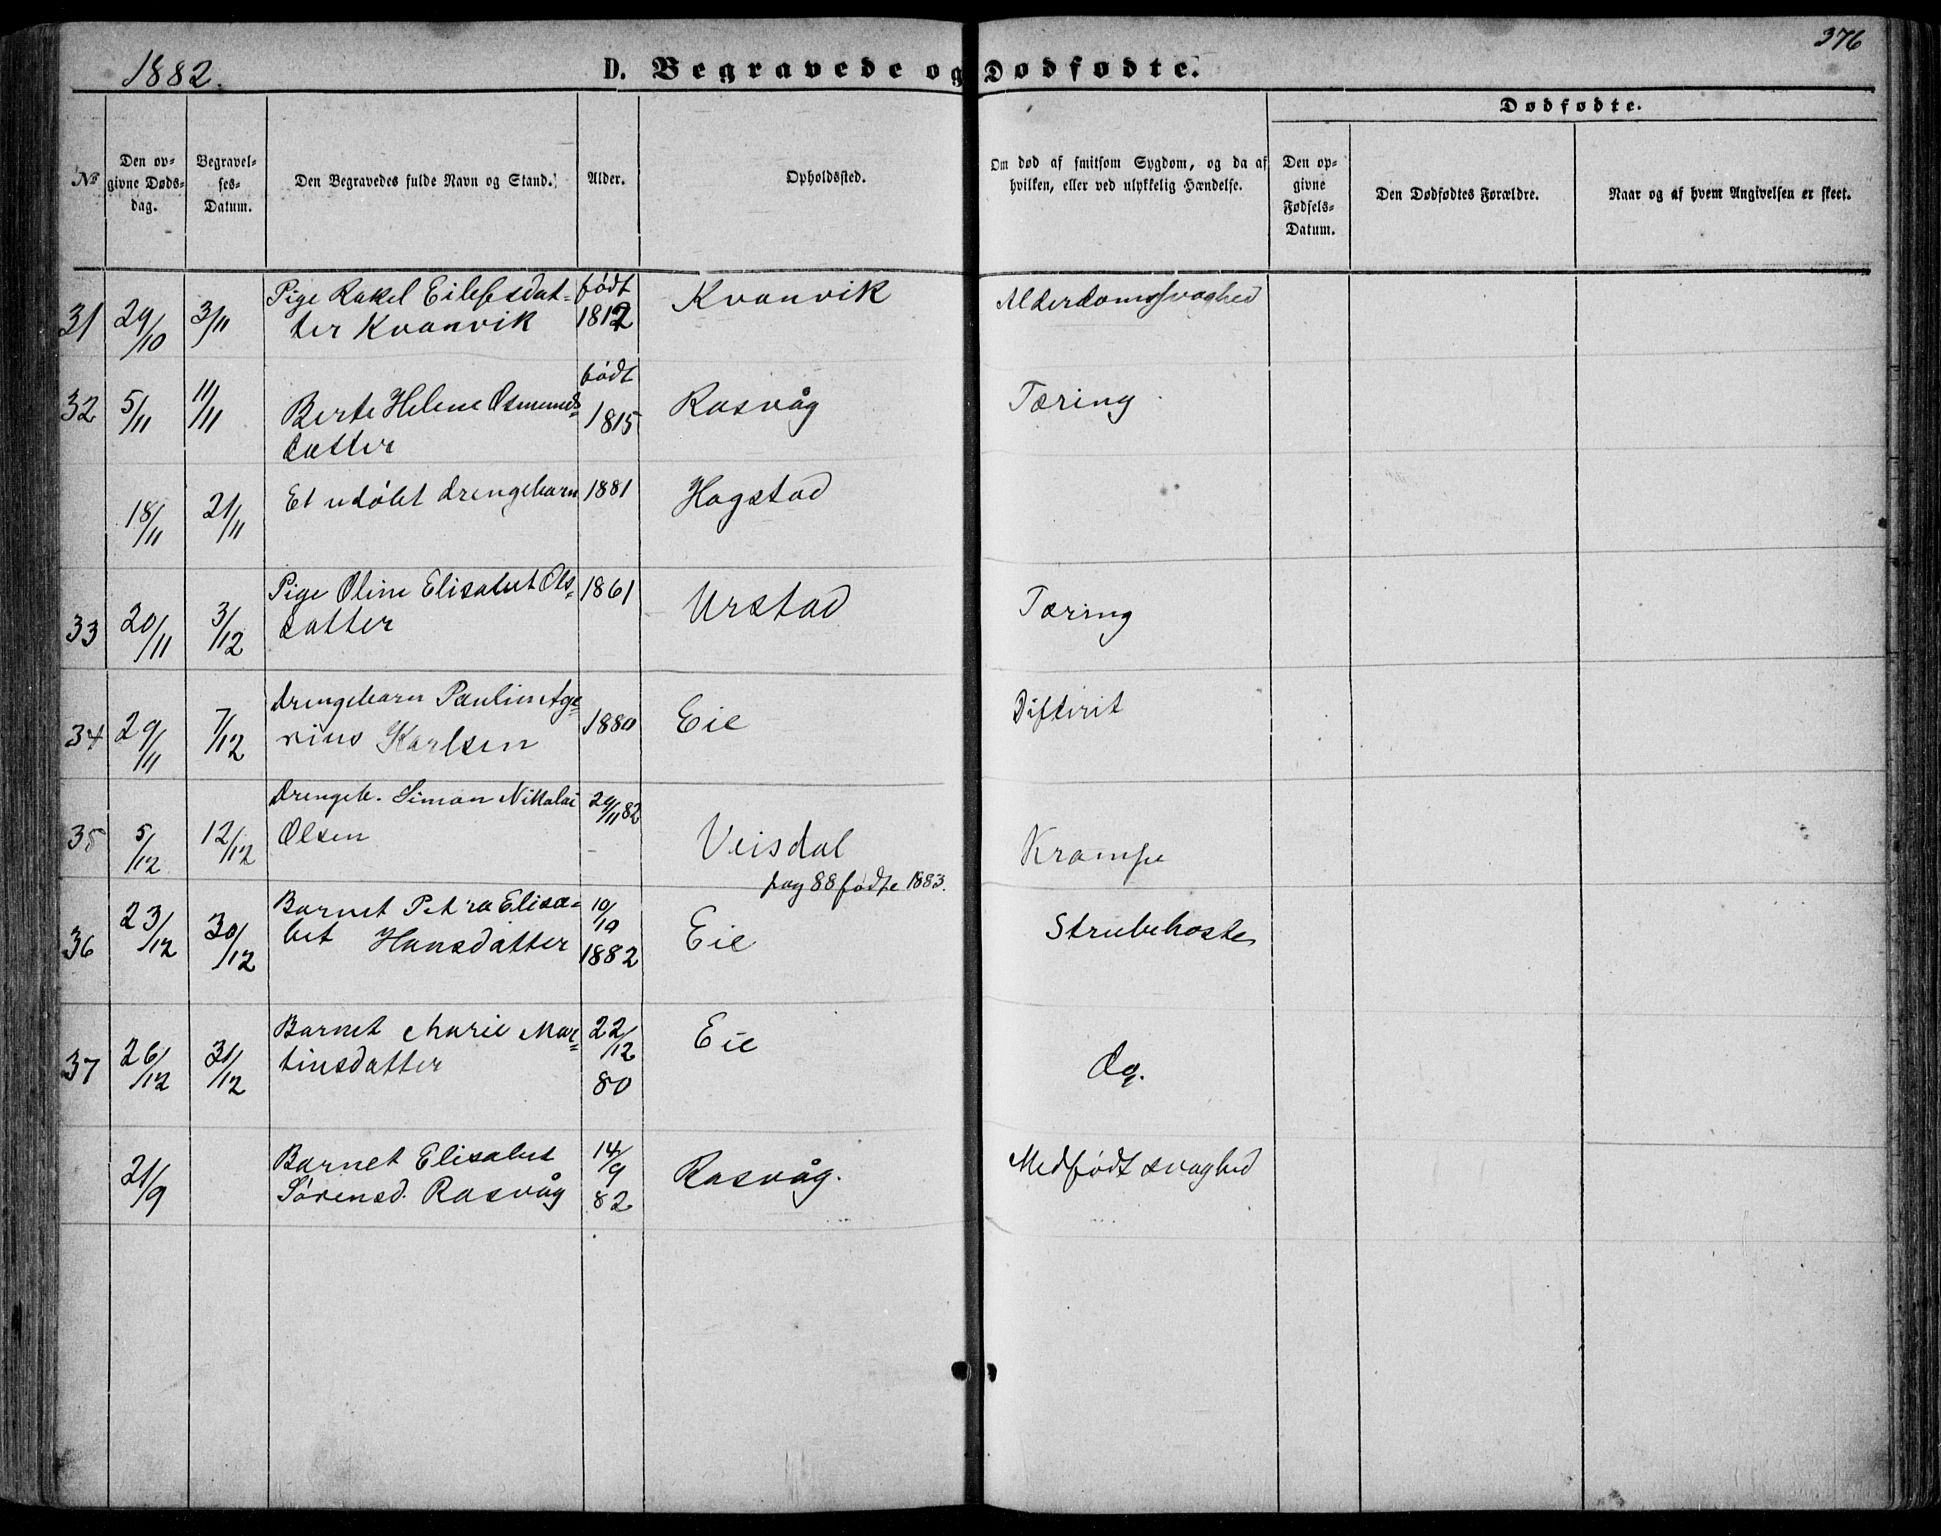 1882.
D. Begravede og Dødfødte.
376
Dødfødte.
№
Den op-
givne Døds-
dag.
Begravel-
ses-
Datum.
Den Begravedes fulde Navn og Stand.
Alder.
Opholdssted.
Om død af smitsom Sygdom, og da af
hvilken, eller ved ulykkelig Hændelse.
Den op-
givne
Fødsels-
Datum.
Den Dødfødtes Forældre.
Naar og af hvem Angivelsen er skeet.
31 29/10 3/11 Pige Rakel Eilefsdat- født Kvanvik Alderdomssvaghed
ter Kvanvik 1812
32 5/11 11/11 Berte Helene Osmunds- født Rasvåg Tæring
datter 1815
18/11 21/11 Et udøbt drengebarn 1881 Hogstad
33 20/11 3/12 Pige Oline Elisabet Ols- 1861 Urstad Tæring
datter
34 29/11 7/12 Drengebarn Paulin Age- 1880 Eie Difterit
rius Karlsen
35 5/12 12/12 Drengeb. Simon Nikolai 29/11 82 Veisdal Krampe
Olsen
pag 88 fødte 1883.
36 23/12 30/12 Barnet Petra Elisa- 10/10 Eie Strubehoste
bet Hansdatter 1882
37 26/12 31/12 Barnet Marie Mar- 22/12 Eie do.
tinsdatter 80
21/9 Barnet Elisabet 14/9 Rasvåg. Medfødt svaghed
Sørensd. Rasvåg 82